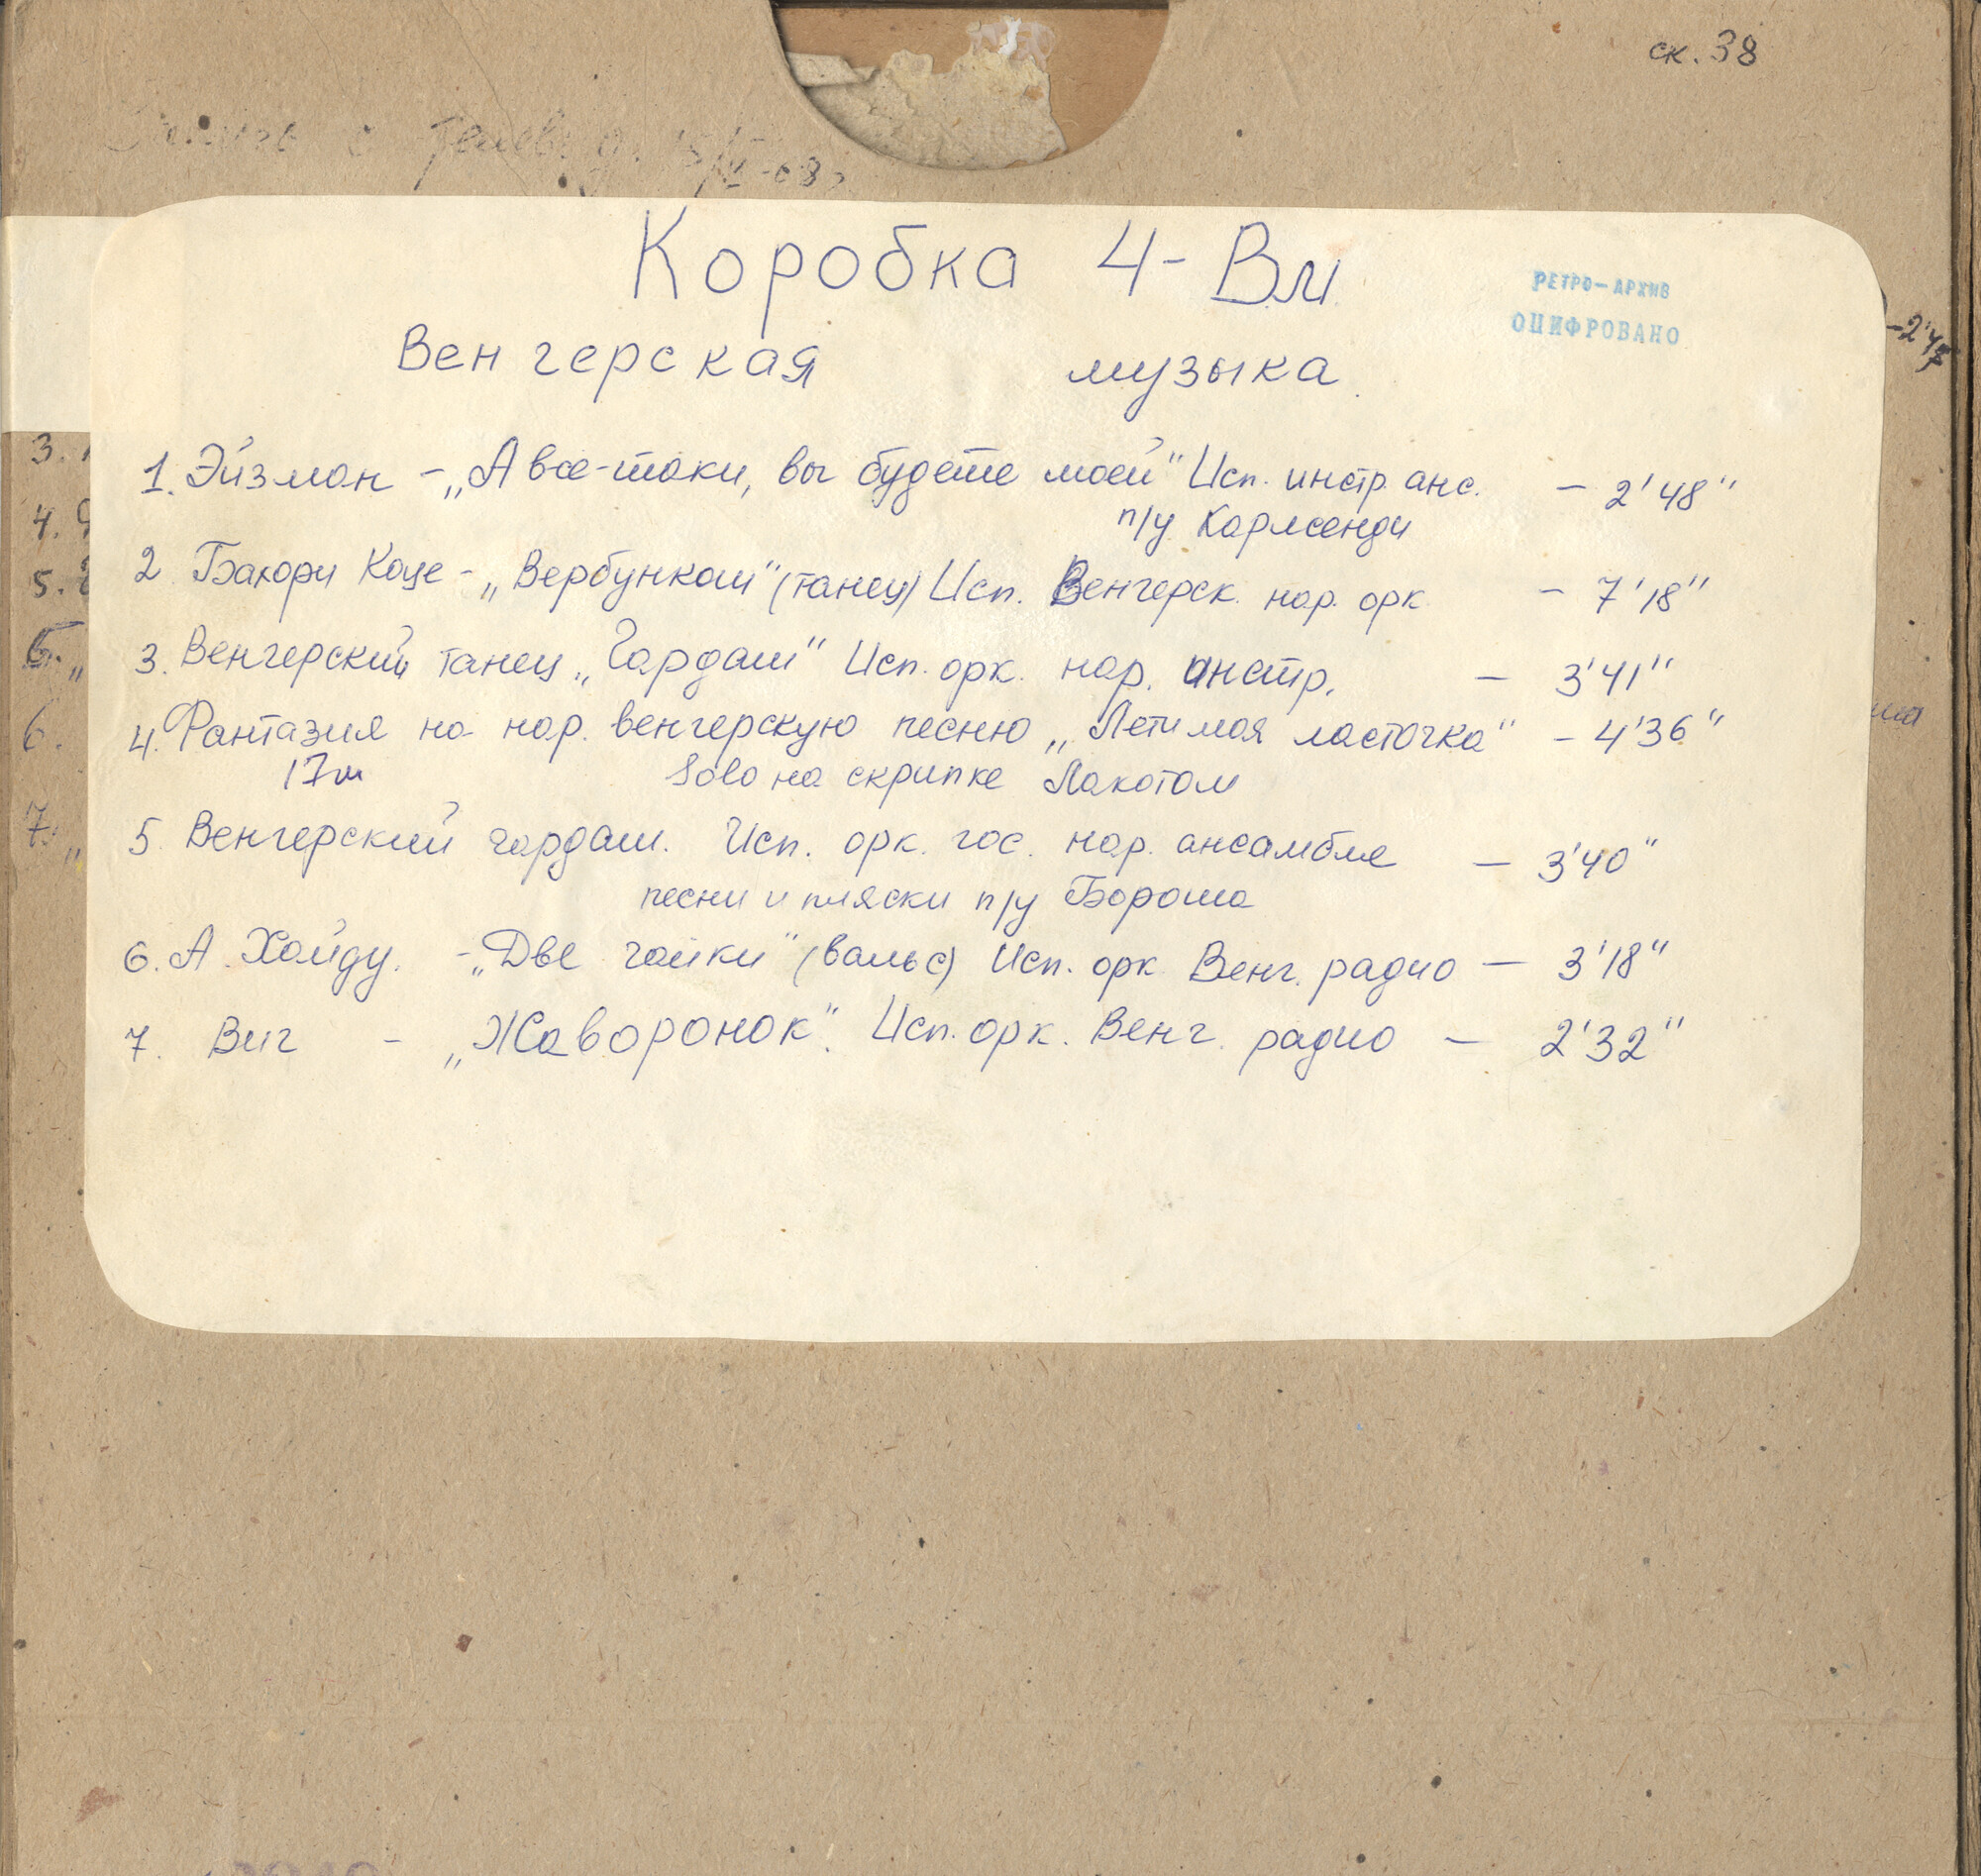 ск. 38
Коробка 4-Вм
РЕТРО-АРХИВ
ОЦИФРОВАНО
Венгерская музыка.
1. Эйзман - „А все-таки, вы будете моей" Исп. инстр. анс. - 2'48"
п/у Карлсенди
2 Бакори Коце - „Вербункаш" (танец) Исп. Венгерск. нар. орк - 7'18"
3. Венгерский танец „Чардаш" Исп. орк. нар. инстр. - 3'41"
4. Фантазия на нар. венгерскую песню „Лети моя ласточка" - 4'36"
17м Solo на скрипке Лакотом
5. Венгерский чардаш. Исп. орк. гос. нар. ансамбля - 3'40"
песни и пляски п/у Бороша
6. А. Хайду. - „Две чайки" (вальс) Исп. орк Венг. радио - 3'18"
7. Виг - „Жаворонок". Исп. орк. Венг. радио - 2'32"
-2'47
3.
4.
5.
6. „
6.
7. „